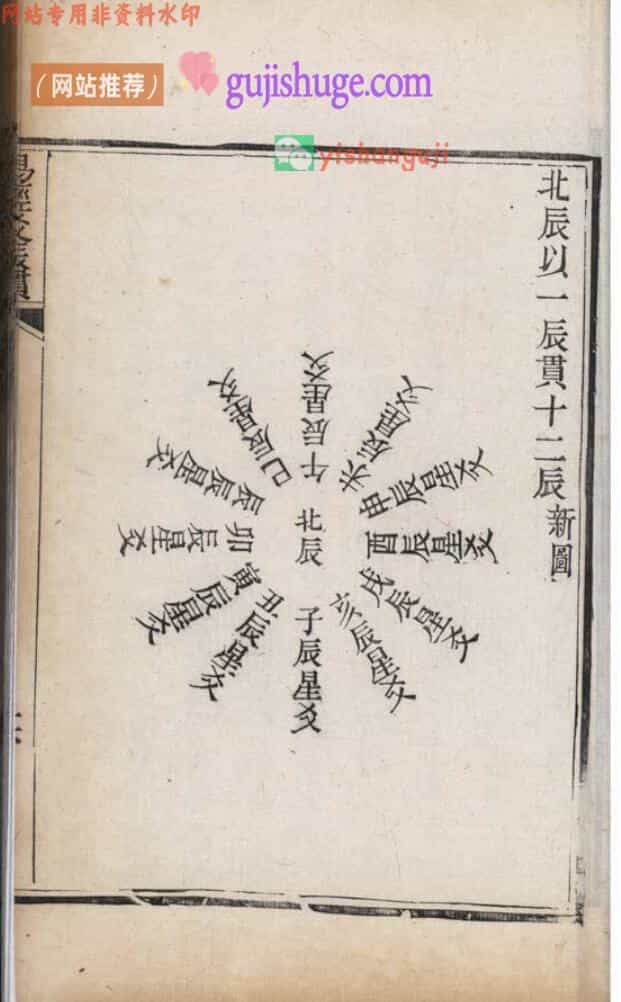 网站专用非资料水印
（网站推荐）
gujishuge.com
yishanguji
北辰以一辰貫十二辰新圖
北辰
子辰星爻
丑辰星爻
寅辰星爻
卯辰星爻
辰辰星爻
巳辰星爻
午辰星爻
未辰星爻
申辰星爻
酉辰星爻
戌辰星爻
亥辰星爻